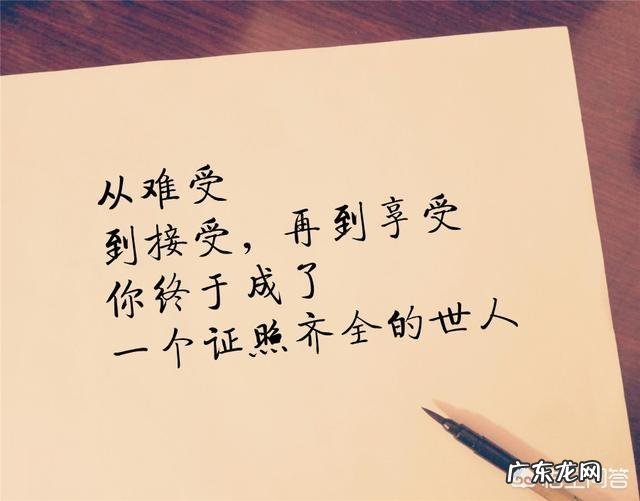 从难受
到接受，再到享受
你终于成了
一个证照齐全的世人
悟空问答
广东龙网